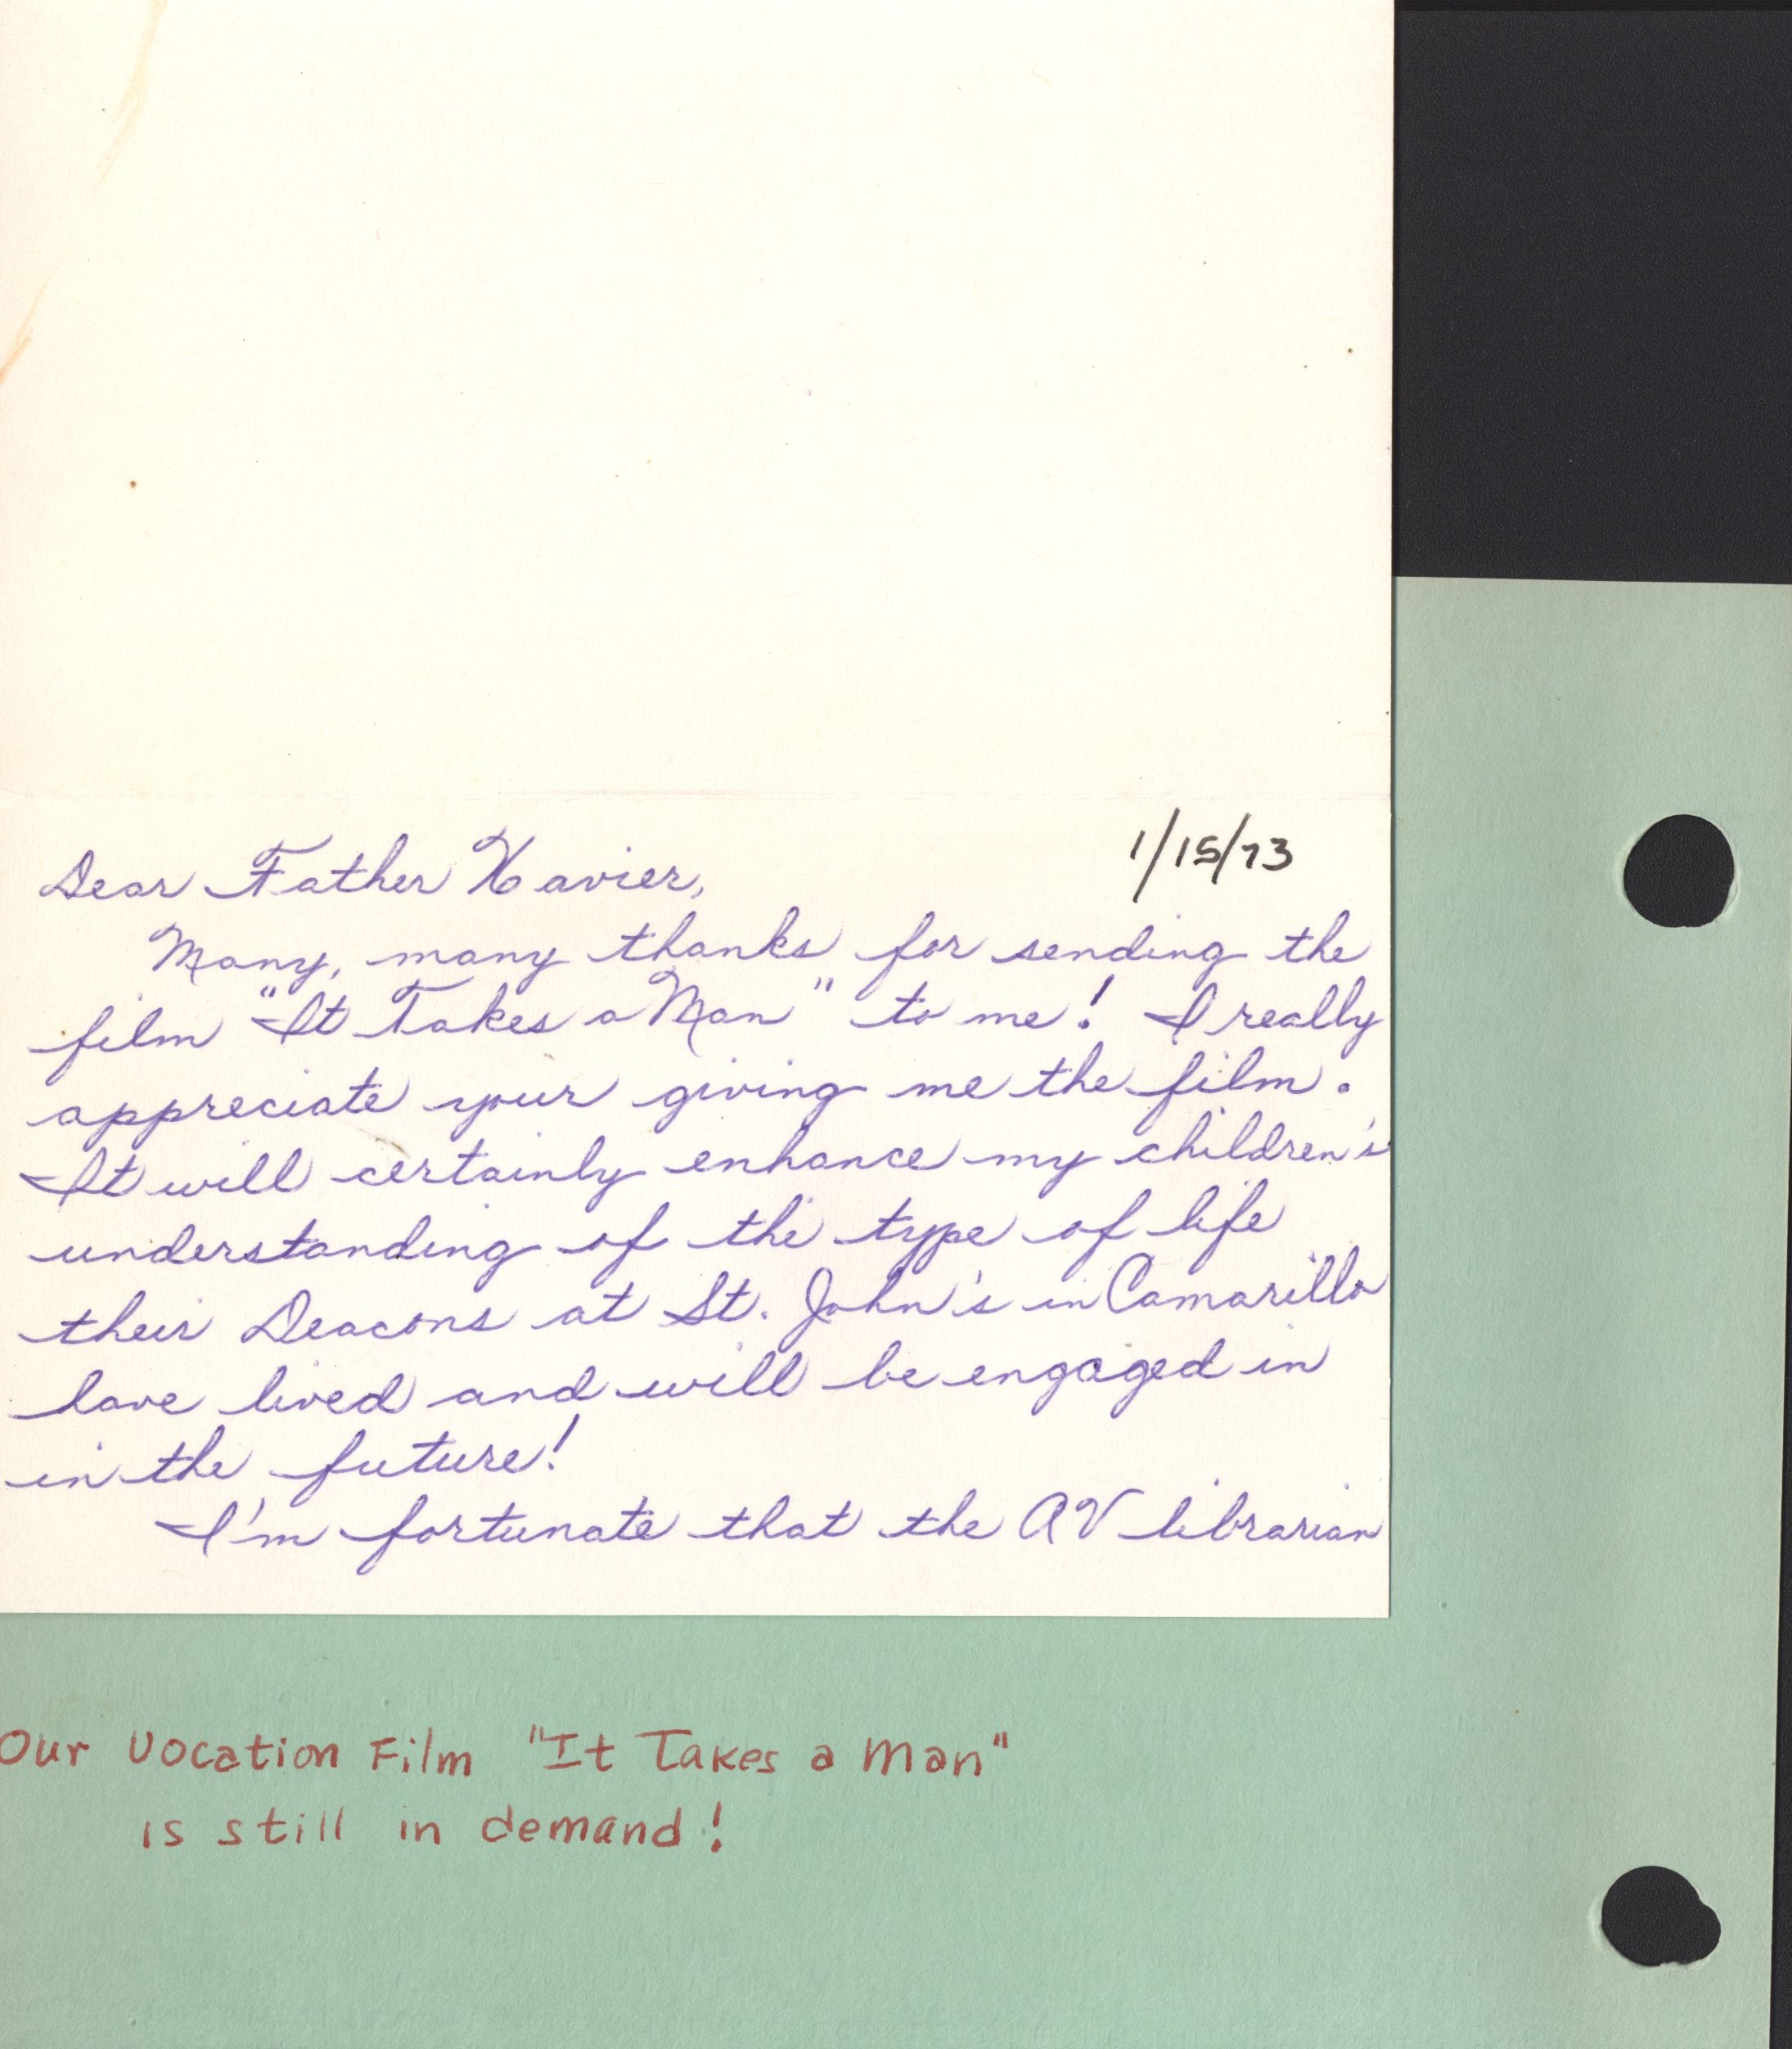 1/15/73
Dear Father Xavier,
Many, many thanks for sending the
film "It Takes a Man" to me! I really
appreciate your giving me the film.
It will certainly enhance my children's
understanding of the type of life
their Deacons at St. John's in Camarillo
have lived and will be engaged in
in the future!
I'm fortunate that the AV librarian
Our Vocation Film "It Takes a Man"
is still in demand!